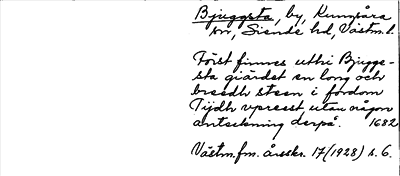 Bjuggsta, by, Kumgåra
sn, Siende hd, Västm.l.
Först finnes uthi Bjugge-
sta giärdet en long och
breedh steen i fordom
Tijdh vpresst utan någon
anteckning derpå. 1682
Västm.fm. årsskr. 17 (1928) s. 6.